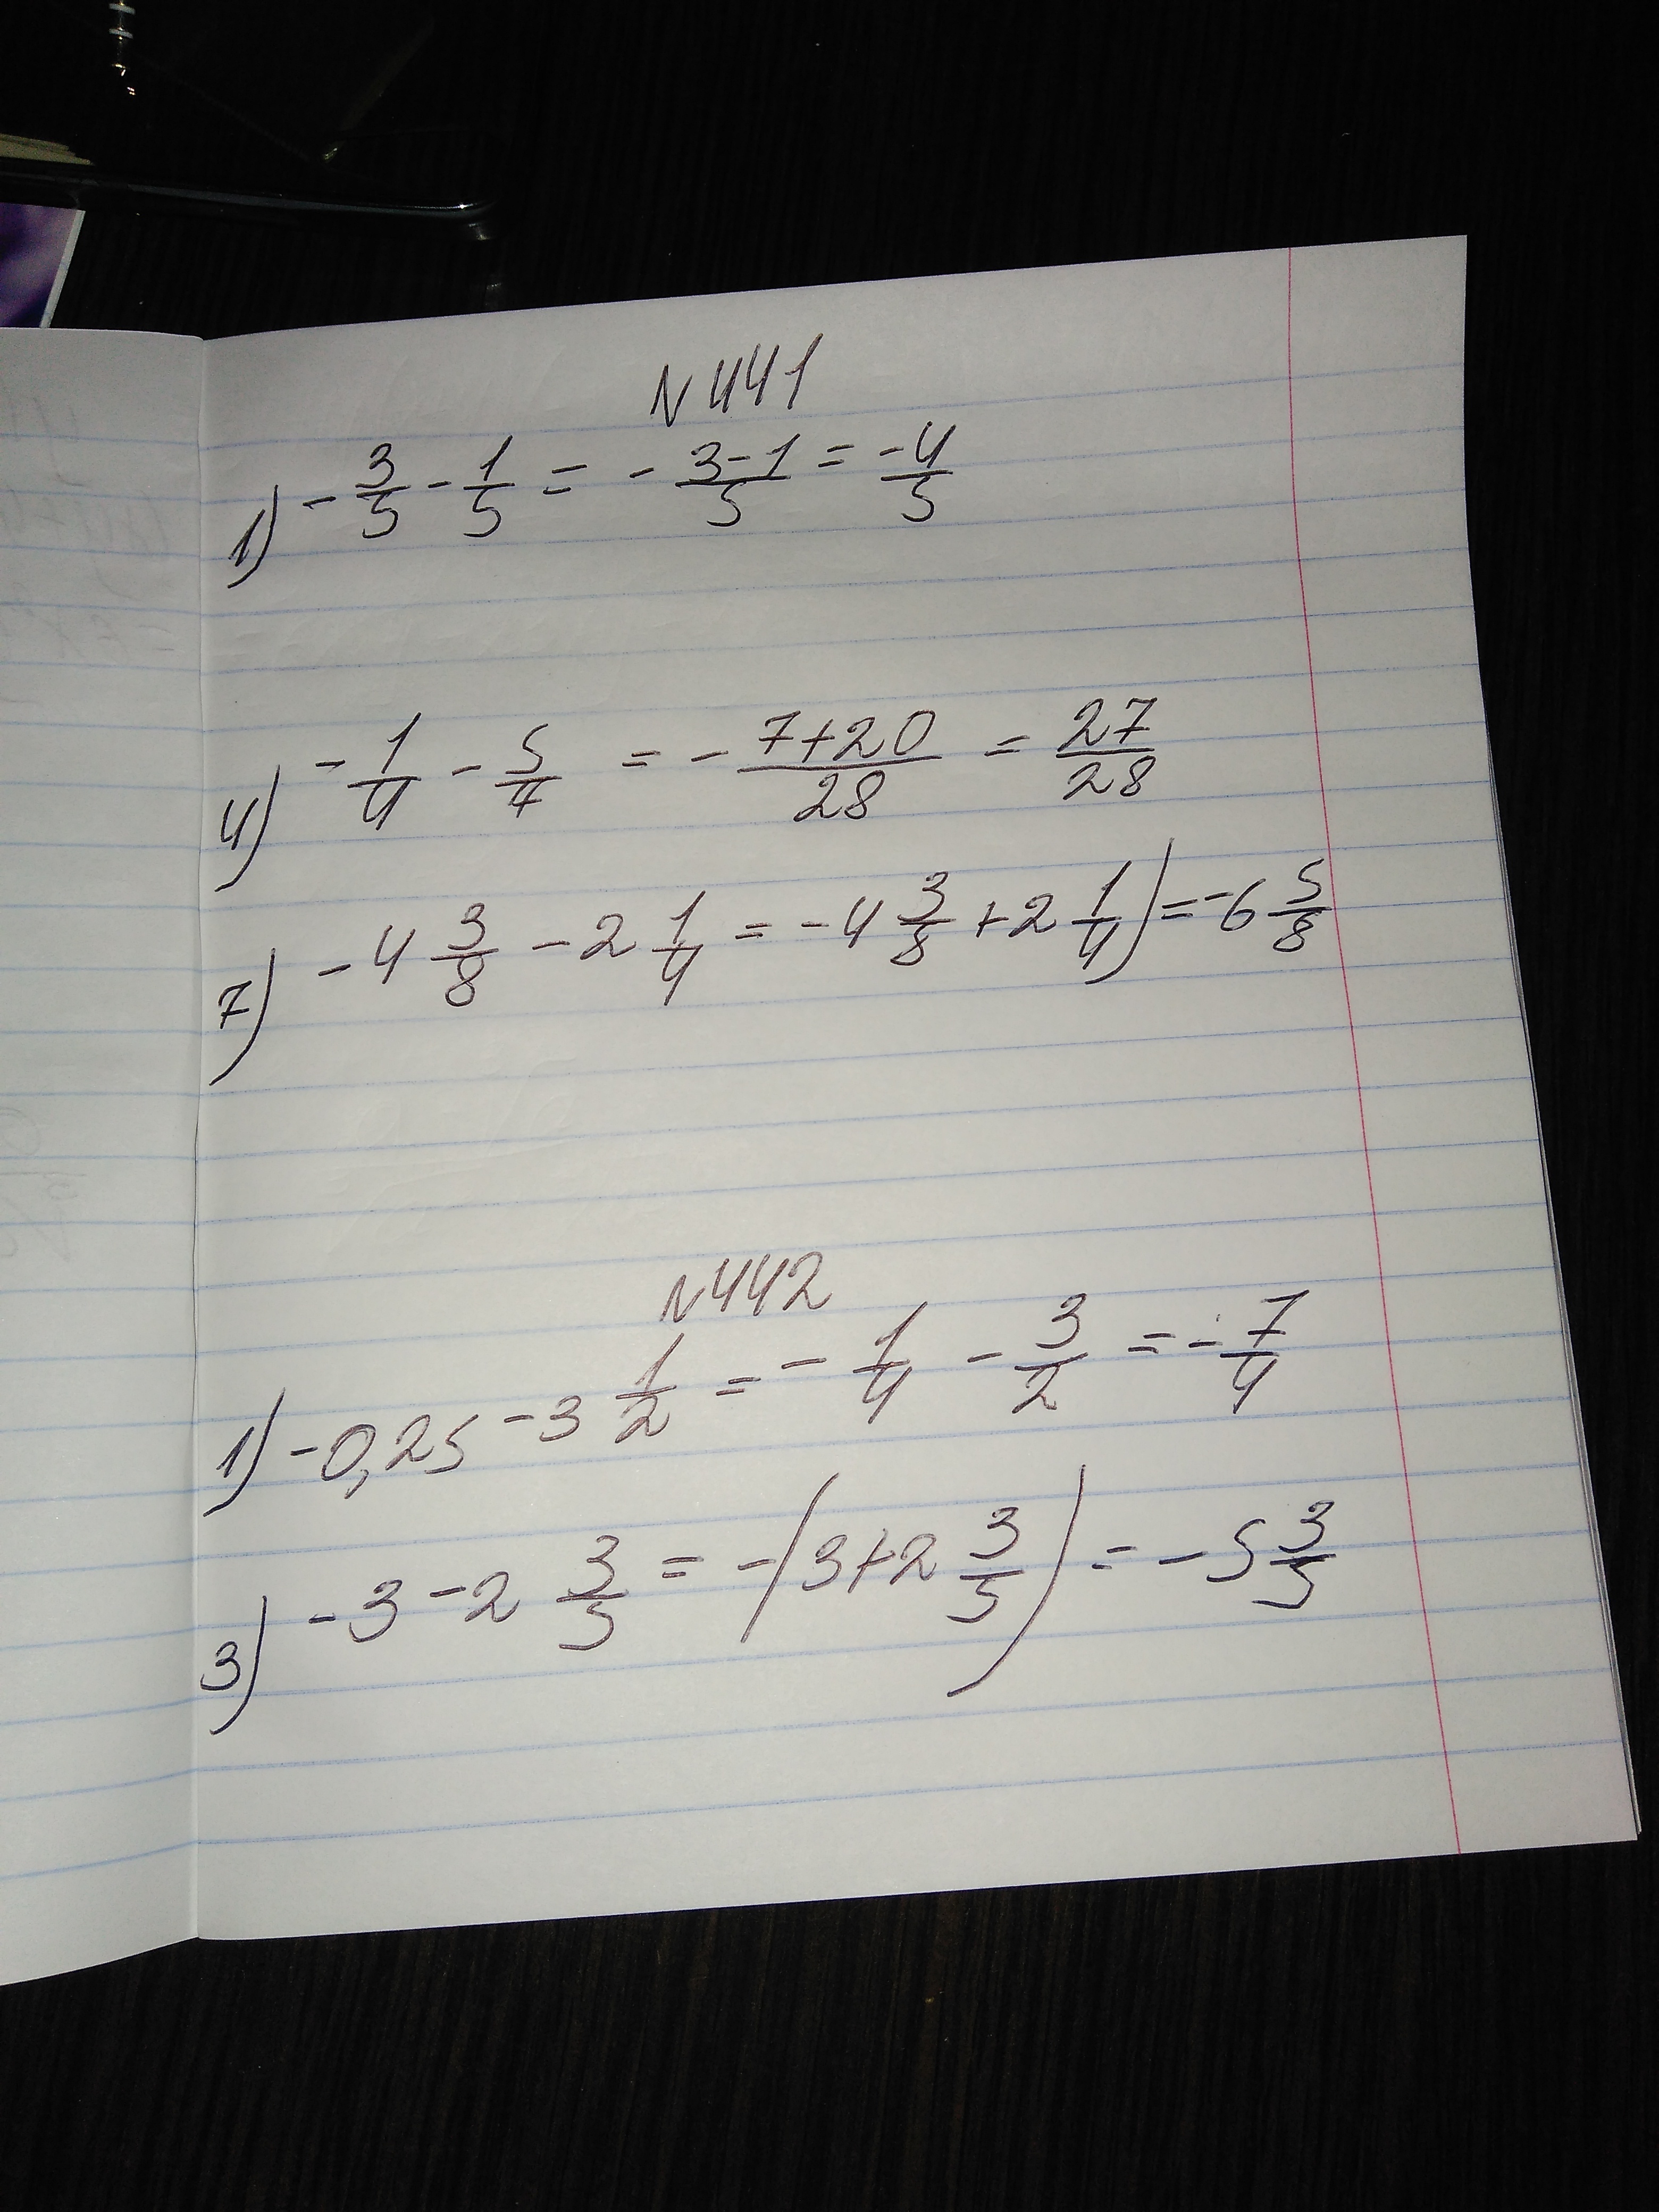 N 441
1) - 3/5 - 1/5 = - 3-1/5 = -4/5
4) - 1/4 - 5/7 = - 7+20/28 = 27/28
7) - 4 3/8 - 2 1/4 = - 4 3/8 + 2 1/4) = -6 5/8
N 442
1) -0,25 - 3 1/2 = - 1/4 - 3/2 = - 7/4
3) - 3 - 2 3/5 = -(3+2 3/5) = - 5 3/5